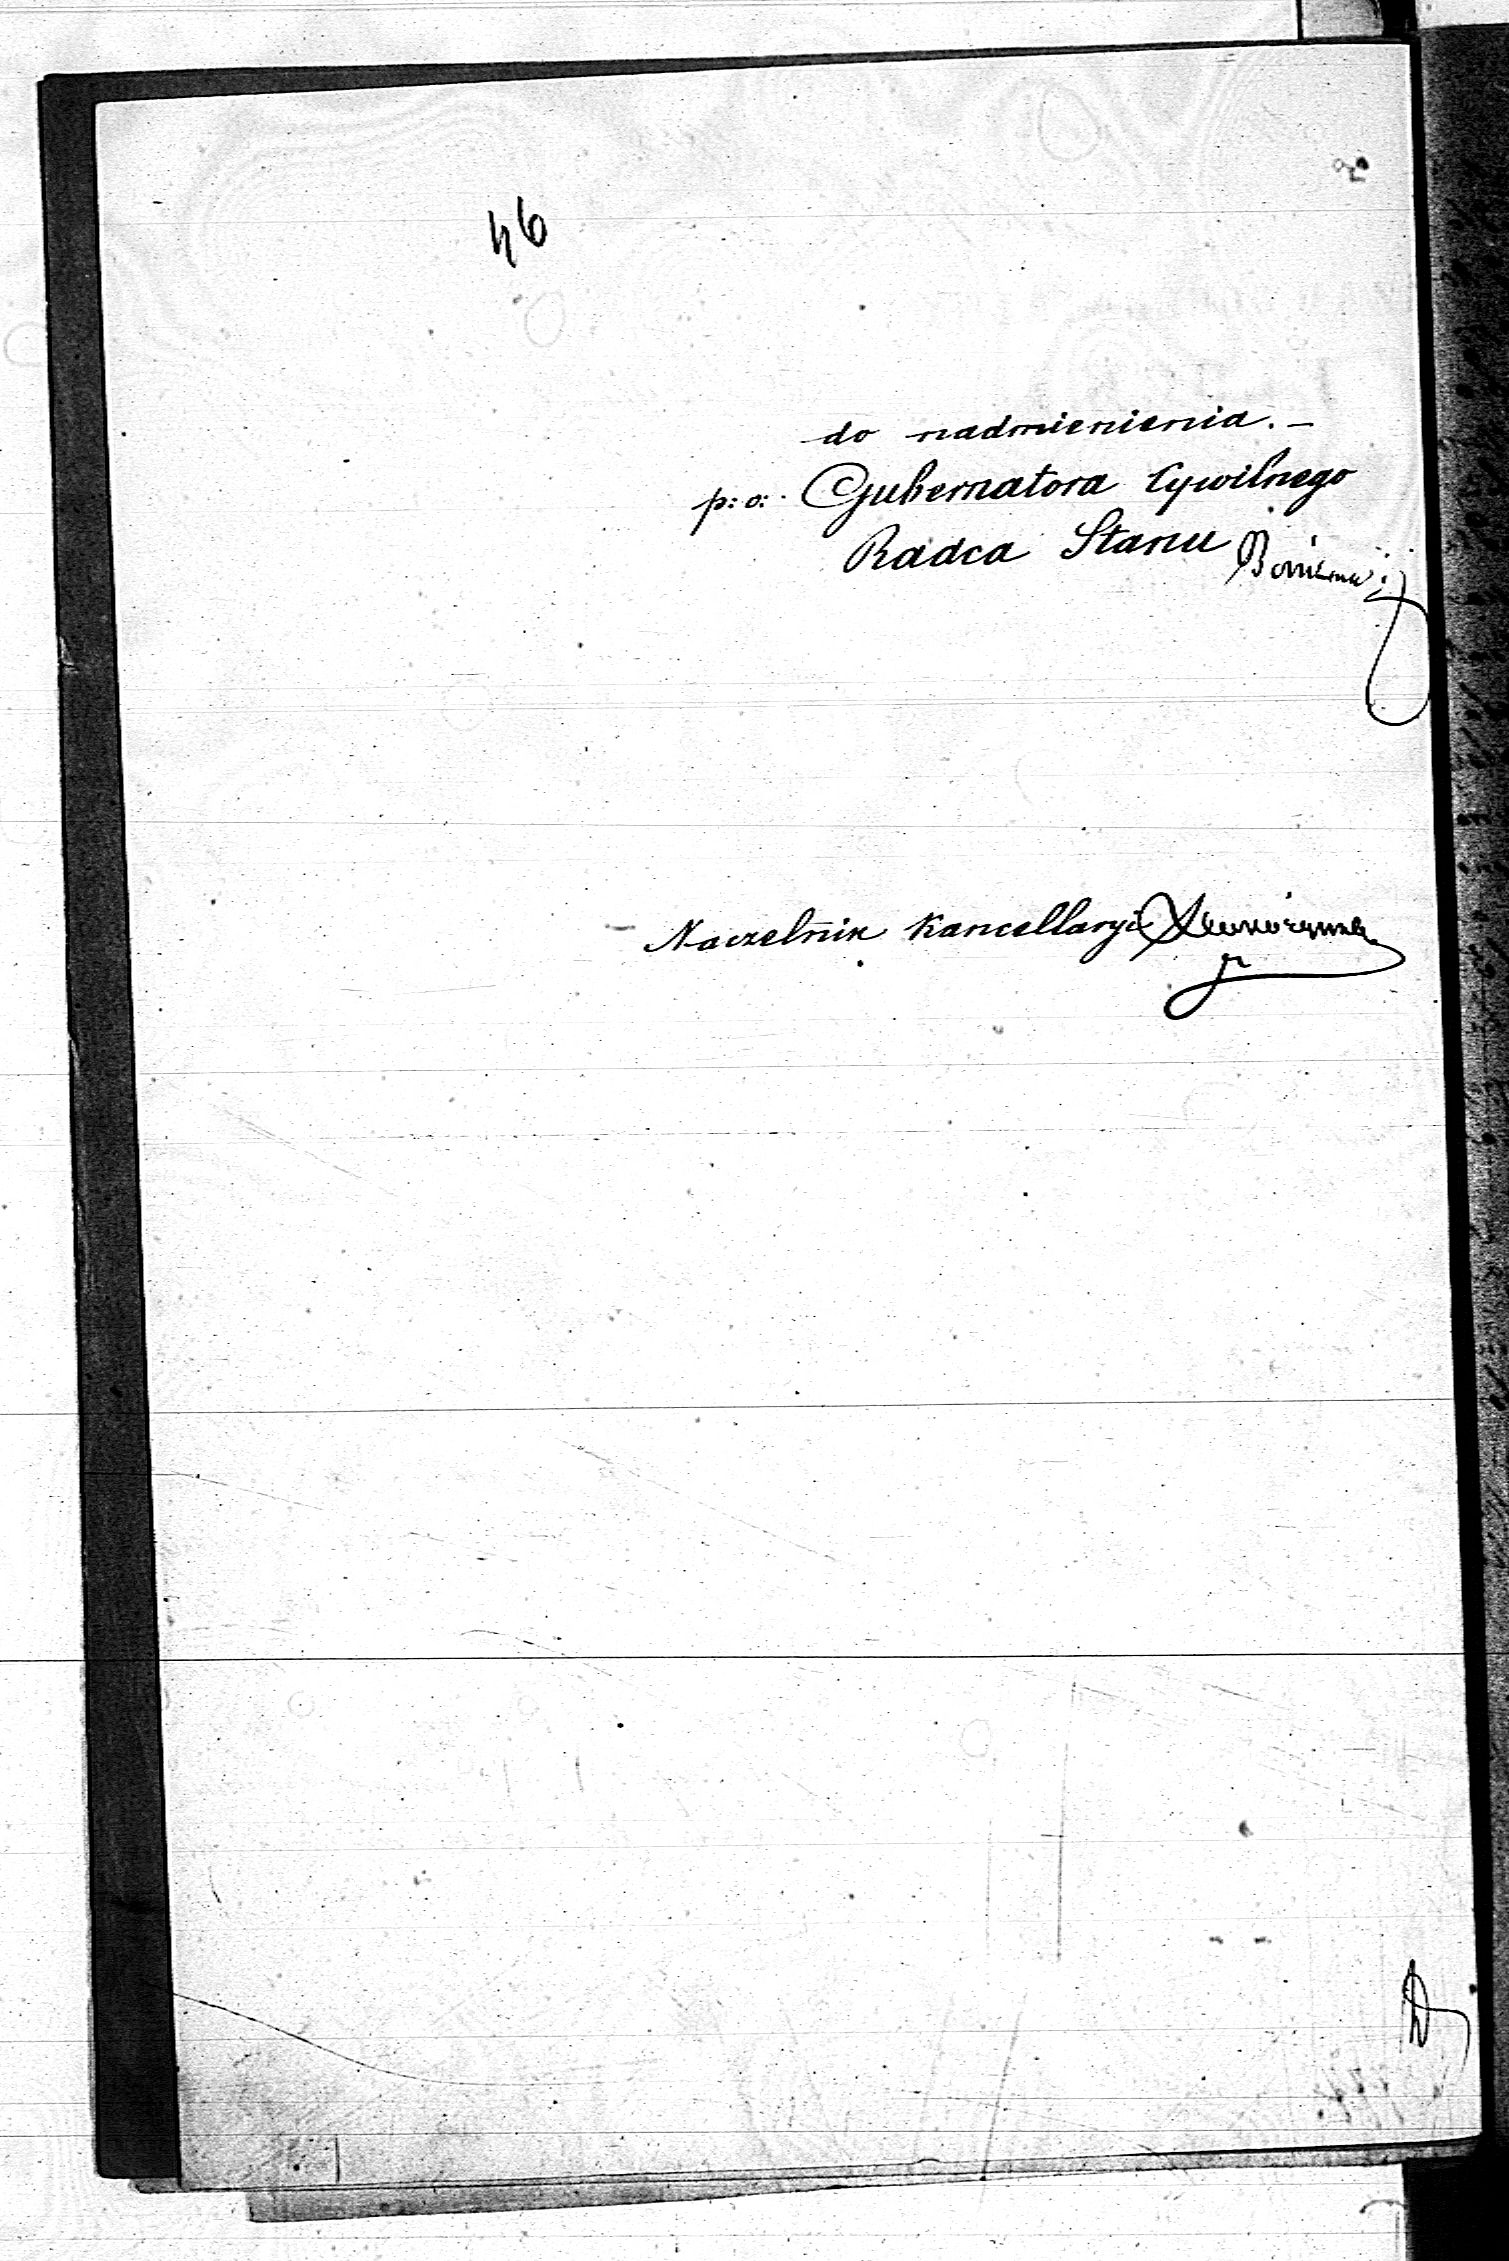 46
do nadmienienia. –
p: o: Gubernatora Cywilnego
Radca Stanu
Naczelnik Kancellaryi